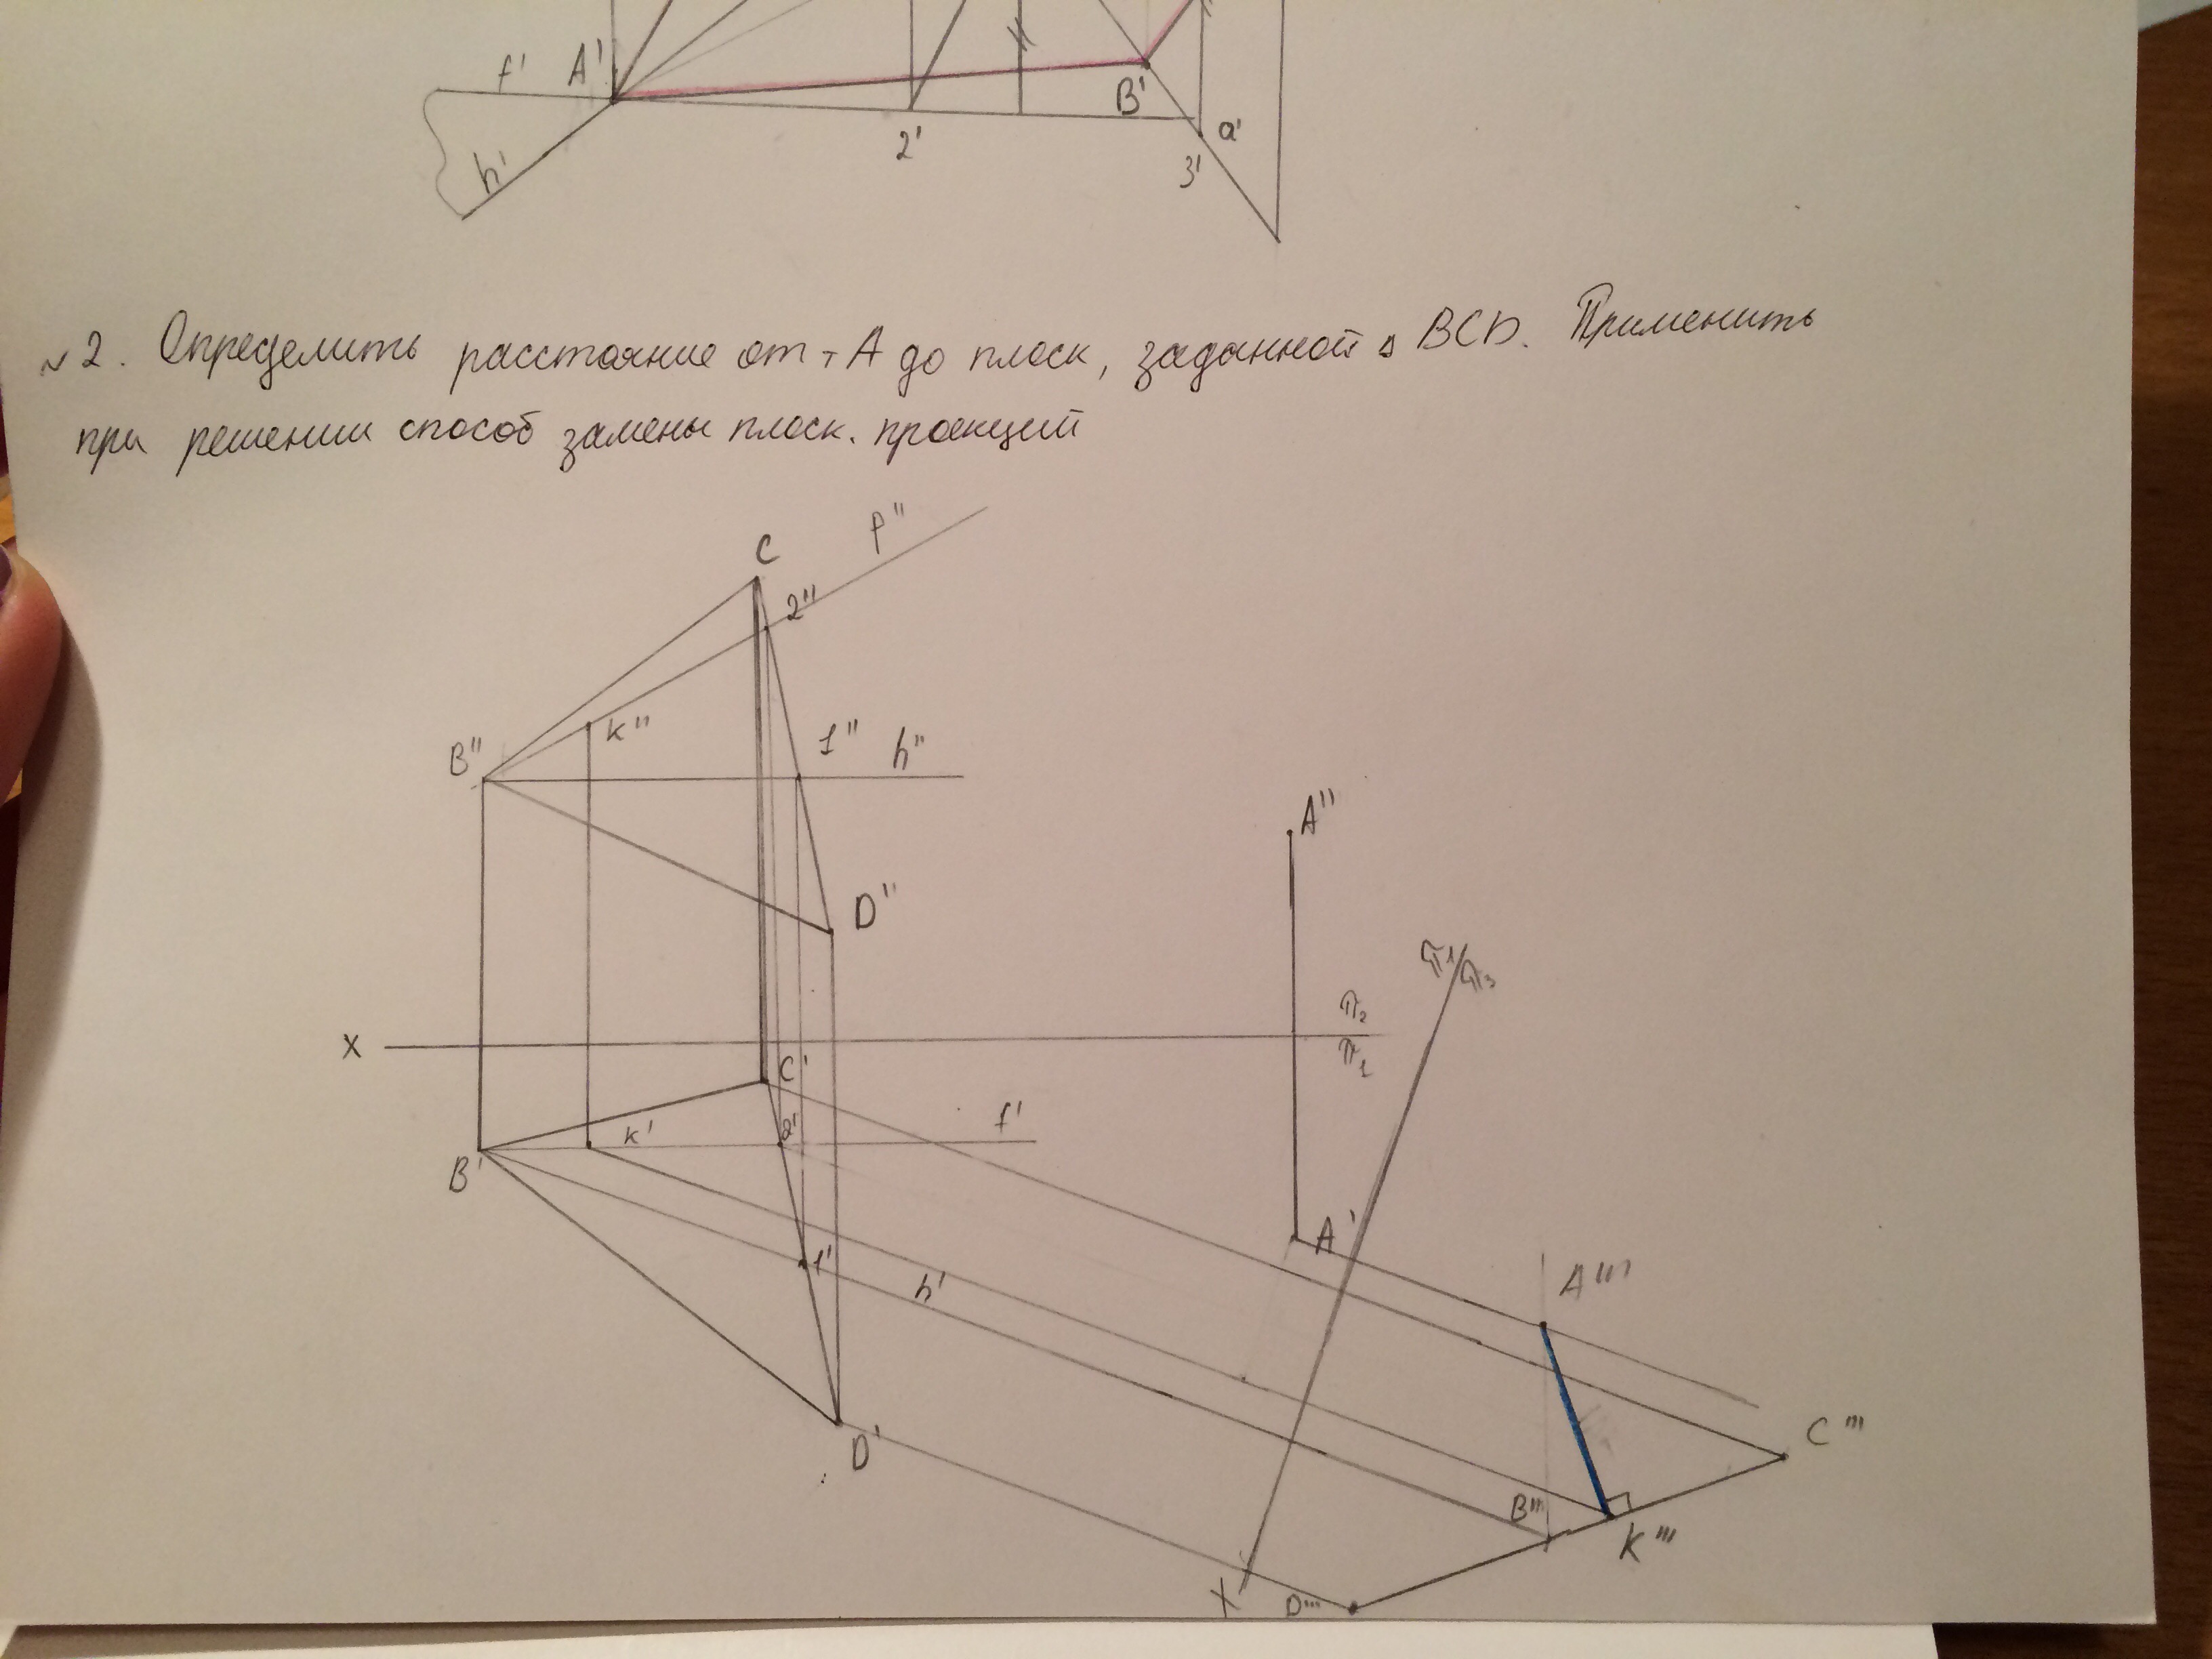 f' A'
h'
2'
B'
a'
3'
№2. Определить расстояние от т A до плоск, заданной Δ BCD. Применить
при решении способ замены плоск. проекций
C
f"
2"
K"
B"
1" h"
A"
D"
π1/π3
X
π2
π1
C'
K' 2' f'
B'
A'
1'
h'
A'''
D'
C'''
B'''
K'''
X D'''